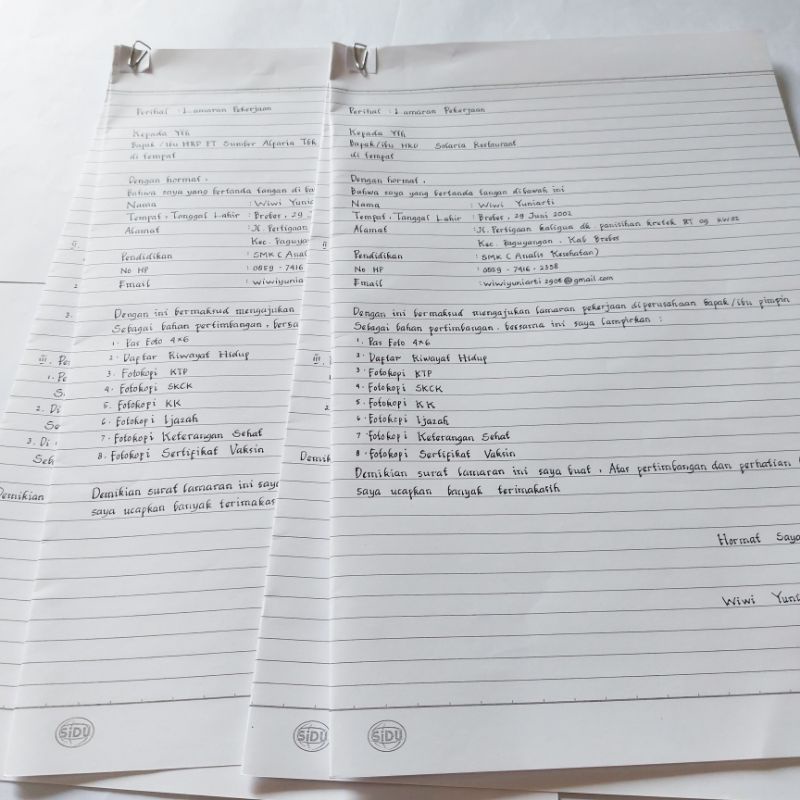 Perihal : Lamaran Pekerjaan
Kepada Yth
Bapak / ibu HRD PT Sumber Alfaria Tbk
di tempat
Dengan hormat,
Bahwa saya yang bertanda tangan di ba
Nama : Wiwi Yunia
Tempat, Tanggal Lahir : Brebes, 29 J
Alamat : Jl. Pertigaan
Kec. Paguya
Pendidikan : SMK ( Anal
No HP : 0859 - 7416
Email : wiwiyunia
Dengan ini bermaksud mengajukan
Sebagai bahan pertimbangan, bersa
1. Pas Foto 4x6
2. Daftar Riwayat Hidup
3. Fotokopi KTP
4. Fotokopi SKCK
5. Fotokopi KK
6. Fotokopi Ijazah
7. Fotokopi Keterangan Sehat
8. Fotokopi Sertifikat Vaksin
Demikian surat lamaran ini saya
saya ucapkan banyak terimakas
SiDU
Perihal : Lamaran Pekerjaan
Kepada Yth
Bapak / ibu HRD Solaria Restaurant
di tempat
Dengan hormat,
Bahwa saya yang bertanda tangan dibawah ini
Nama : Wiwi Yuniarti
Tempat, Tanggal Lahir : Brebes, 29 Juni 2002
Alamat : Jl. Pertigaan kaligua dk panisihan kretek RT 09 RW 02
Kec. Paguyangan. Kab Brebes
Pendidikan : SMK ( Analis Kesehatan)
No HP : 0859 - 7416 - 2358
Email : wiwiyuniarti2906@gmail.com
Dengan ini bermaksud mengajukan lamaran pekerjaan diperusahaan bapak/ibu pimpin
Sebagai bahan pertimbangan. bersama ini saya lampirkan :
1. Pas Foto 4x6
2. Daftar Riwayat Hidup
3. Fotokopi KTP
4. Fotokopi SKCK
5. Fotokopi KK
6. Fotokopi Ijazah
7. Fotokopi Keterangan Sehat
8. Fotokopi Sertifikat Vaksin
Demikian surat lamaran ini saya buat, Atas pertimbangan dan perhatian
saya ucapkan banyak terimakasih
Hormat Saya
Wiwi Yuni
SiDU
iii. Pe
1. Pe
S
2. Di
Se
3. Di
Seb
Demikian
Demik
SiDU